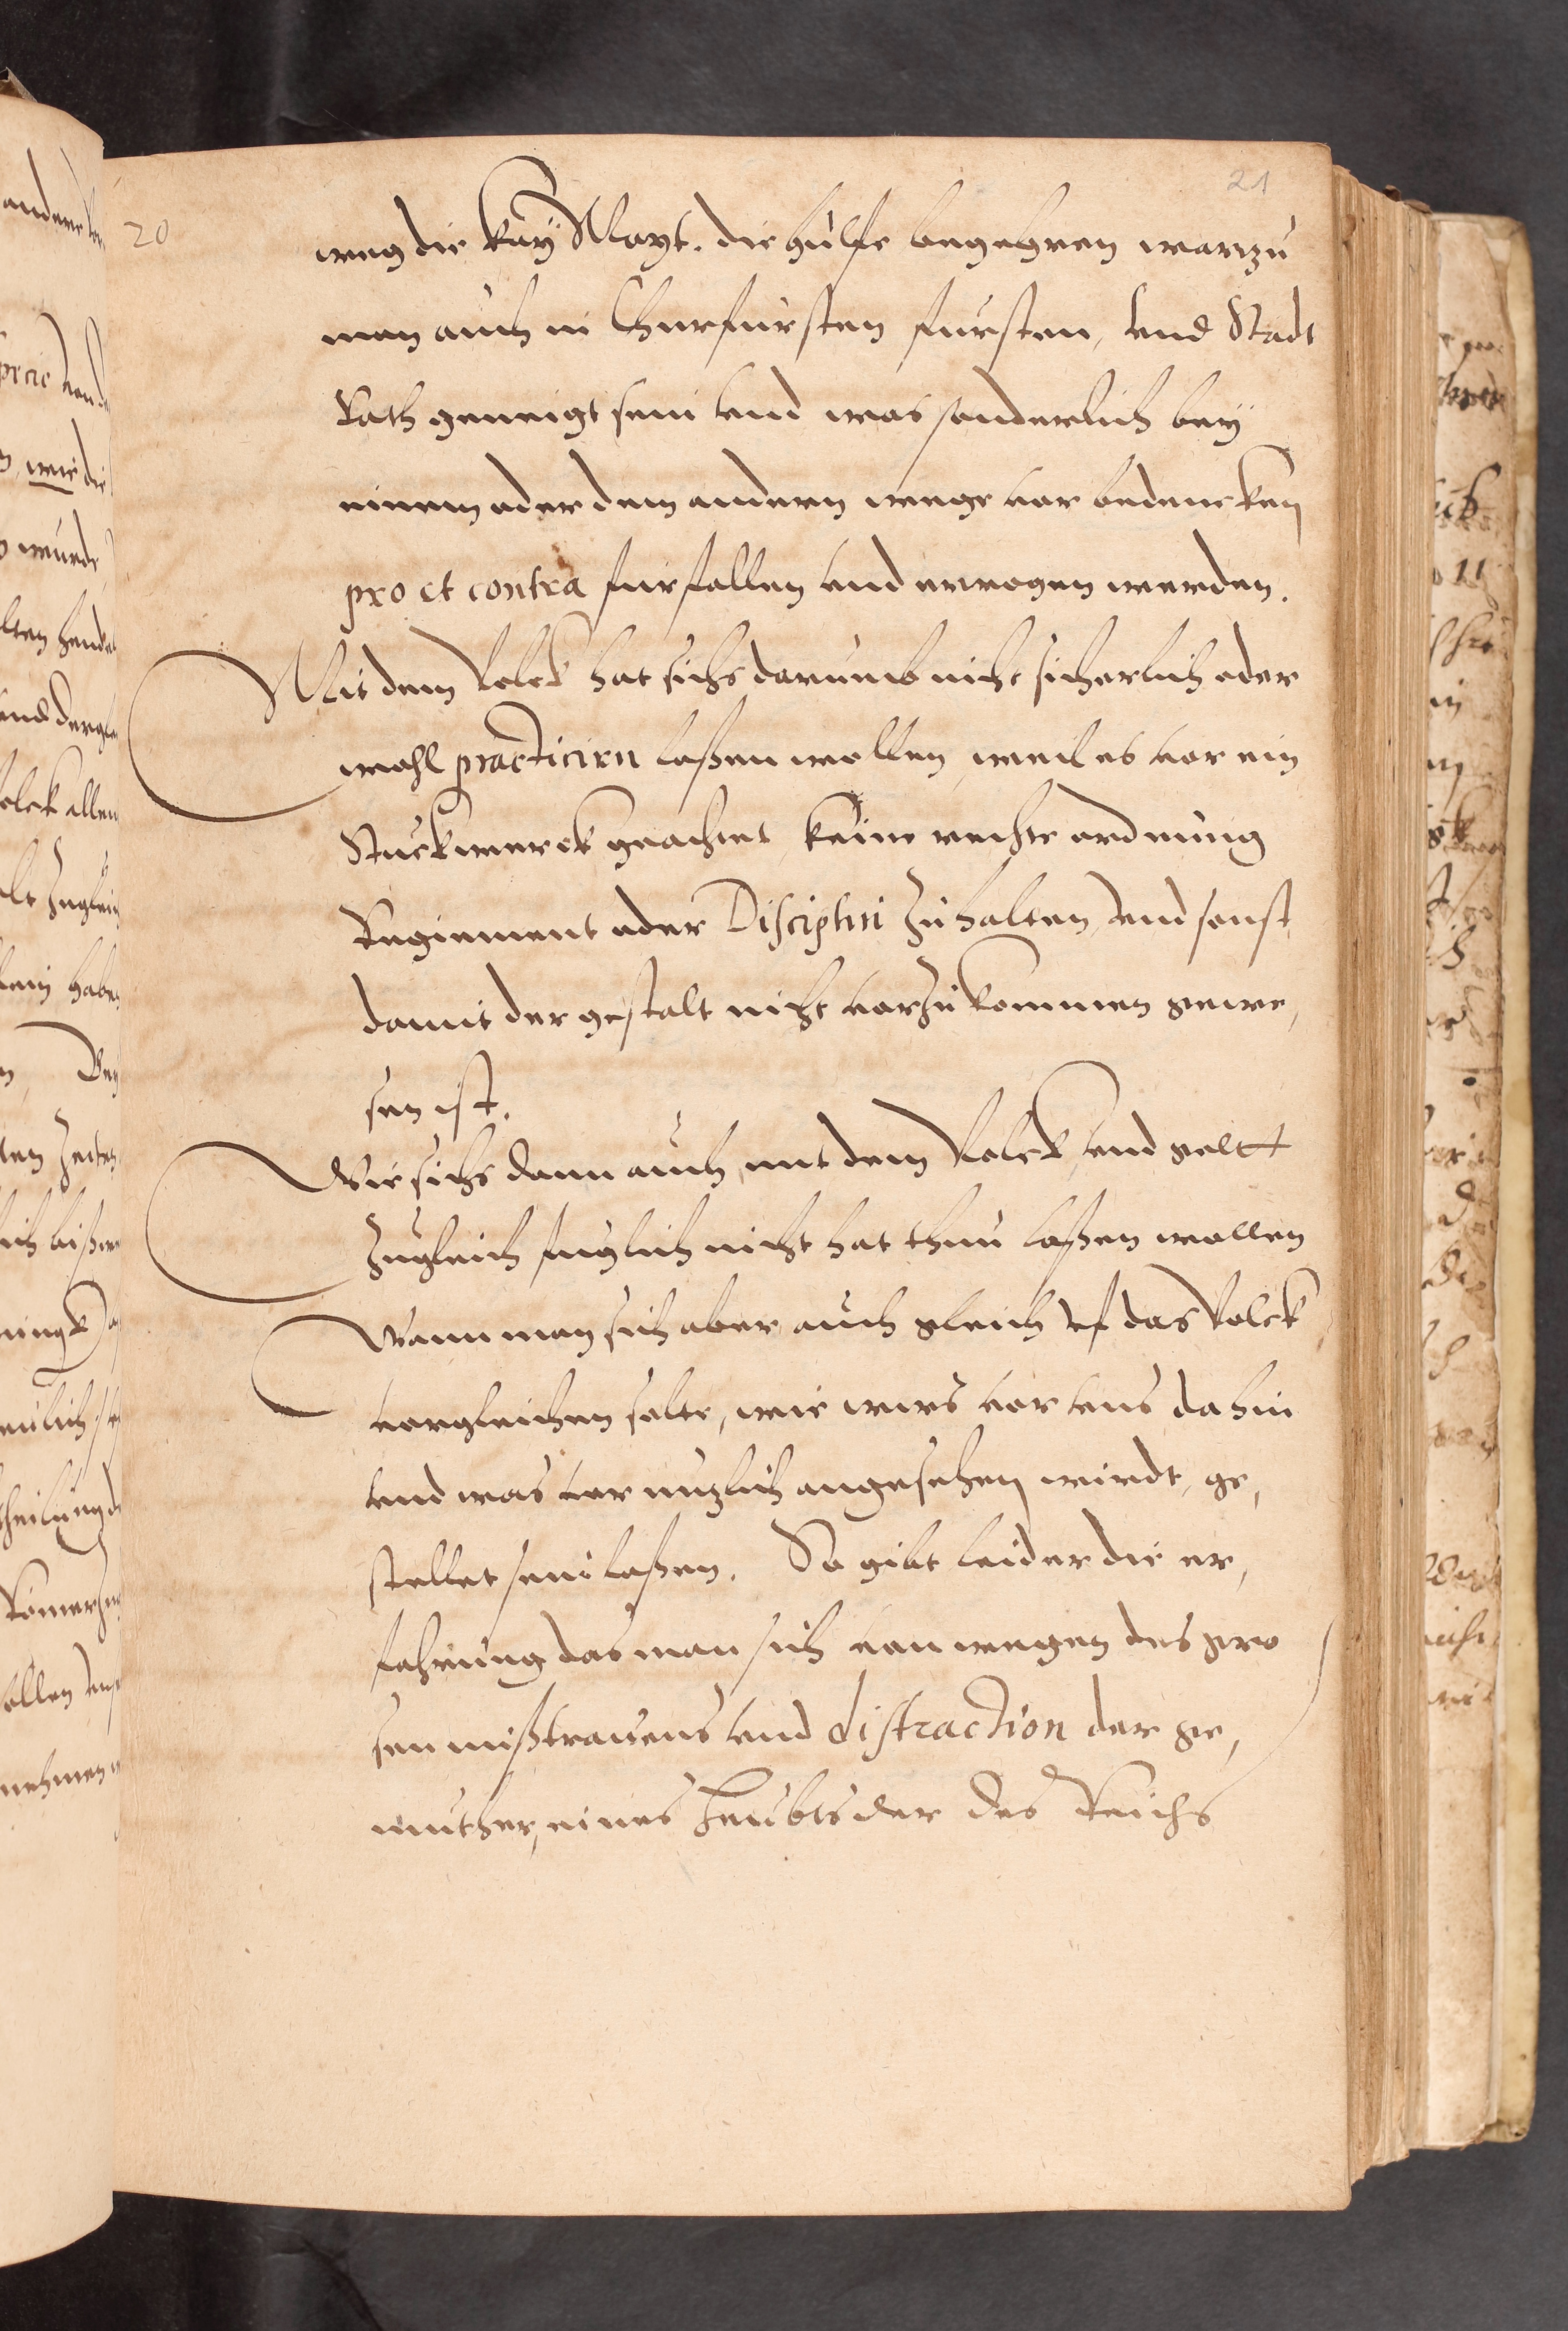 20
21
weg die Kay Mayt. die hülffe begehren warzu
man auch in Churfursten fursten, vnd Stadt
Rath geneigt sein vnd was sonderlich bey
einem oder dem andern wege vor bedencken
pro et contra furfallen vnd erwogen werden.
Mit dem Volck hat sichs darumb nicht sicherlich oder
wohl practicirn laßen wollen, weil es vor ein
Stuckwerck geachtet keine rechte ordnung
Regiement oder Disciplin zu halten, vnd sonst
damit der gestalt nicht vorzukommen gewe,
sen ist.
Wie sichs dann auch, mit dem Volck, vnd gelt
zugleich fuglich nicht hat thun laßen wollen
Wann man sich aber auch gleich vf das Volck
vorgleichen solte, wie wirs vor vns dahin
vnd was vor nuzlich angesehen wirdt, ge,
stellet sein laßen. So gibt leider die er,
fahrung das man sich von wegen des gro
sen mißtrauens vnd distraction der ge,
muther, eines Heubts der des Reichs